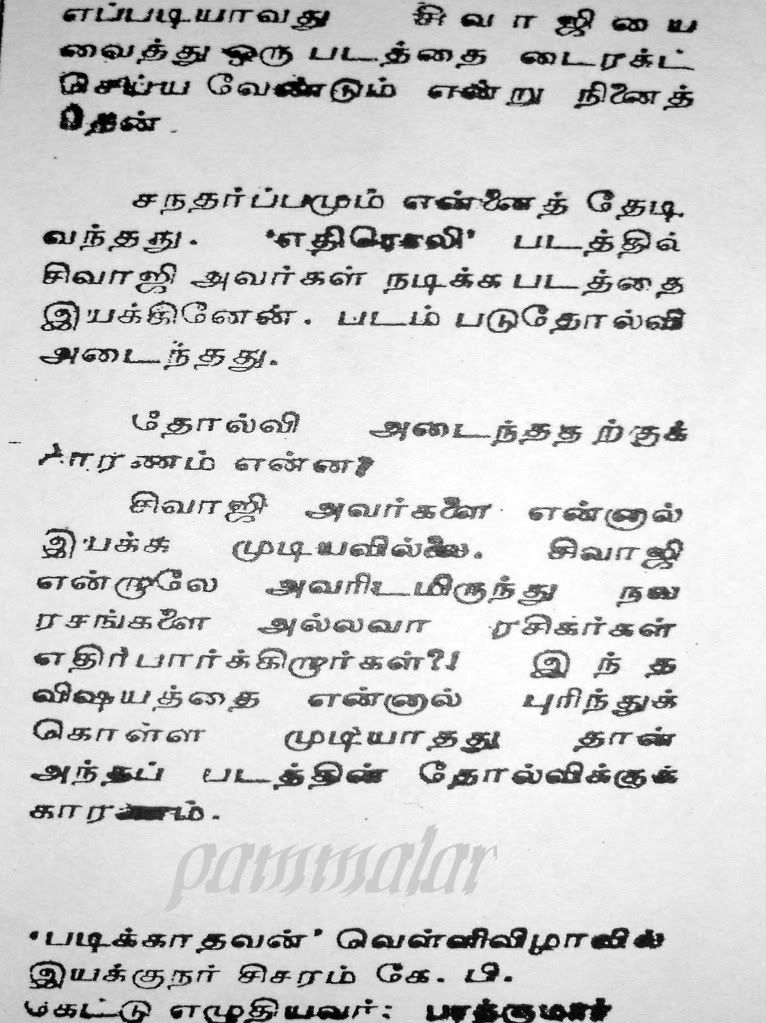 எப்படியாவது சிவாஜியை
வைத்து ஒரு படத்தை டைரக்ட்
செய்ய வேண்டும் என்று நினைத்
தேன்.
சந்தர்ப்பமும் என்னைத் தேடி
வந்தது. 'எதிரொலி' படத்தில்
சிவாஜி அவர்கள் நடிக்க படத்தை
இயக்கினேன். படம் படுதோல்வி
அடைந்தது.
தோல்வி அடைந்ததற்குக்
காரணம் என்ன?
சிவாஜி அவர்களை என்னால்
இயக்க முடியவில்லை. சிவாஜி
என்றாலே அவரிடமிருந்து நவ
ரசங்களை அல்லவா ரசிகர்கள்
எதிர்பார்க்கிறார்கள்?! இந்த
விஷயத்தை என்னால் புரிந்துக்
கொள்ள முடியாதது தான்
அந்தப் படத்தின் தோல்விக்குக்
காரணம்.
pammalar
'படிக்காதவன்' வெள்ளிவிழாவில்
இயக்குநர் சிகரம் கே. பி.
கேட்டு எழுதியவர்: பரத்குமார்